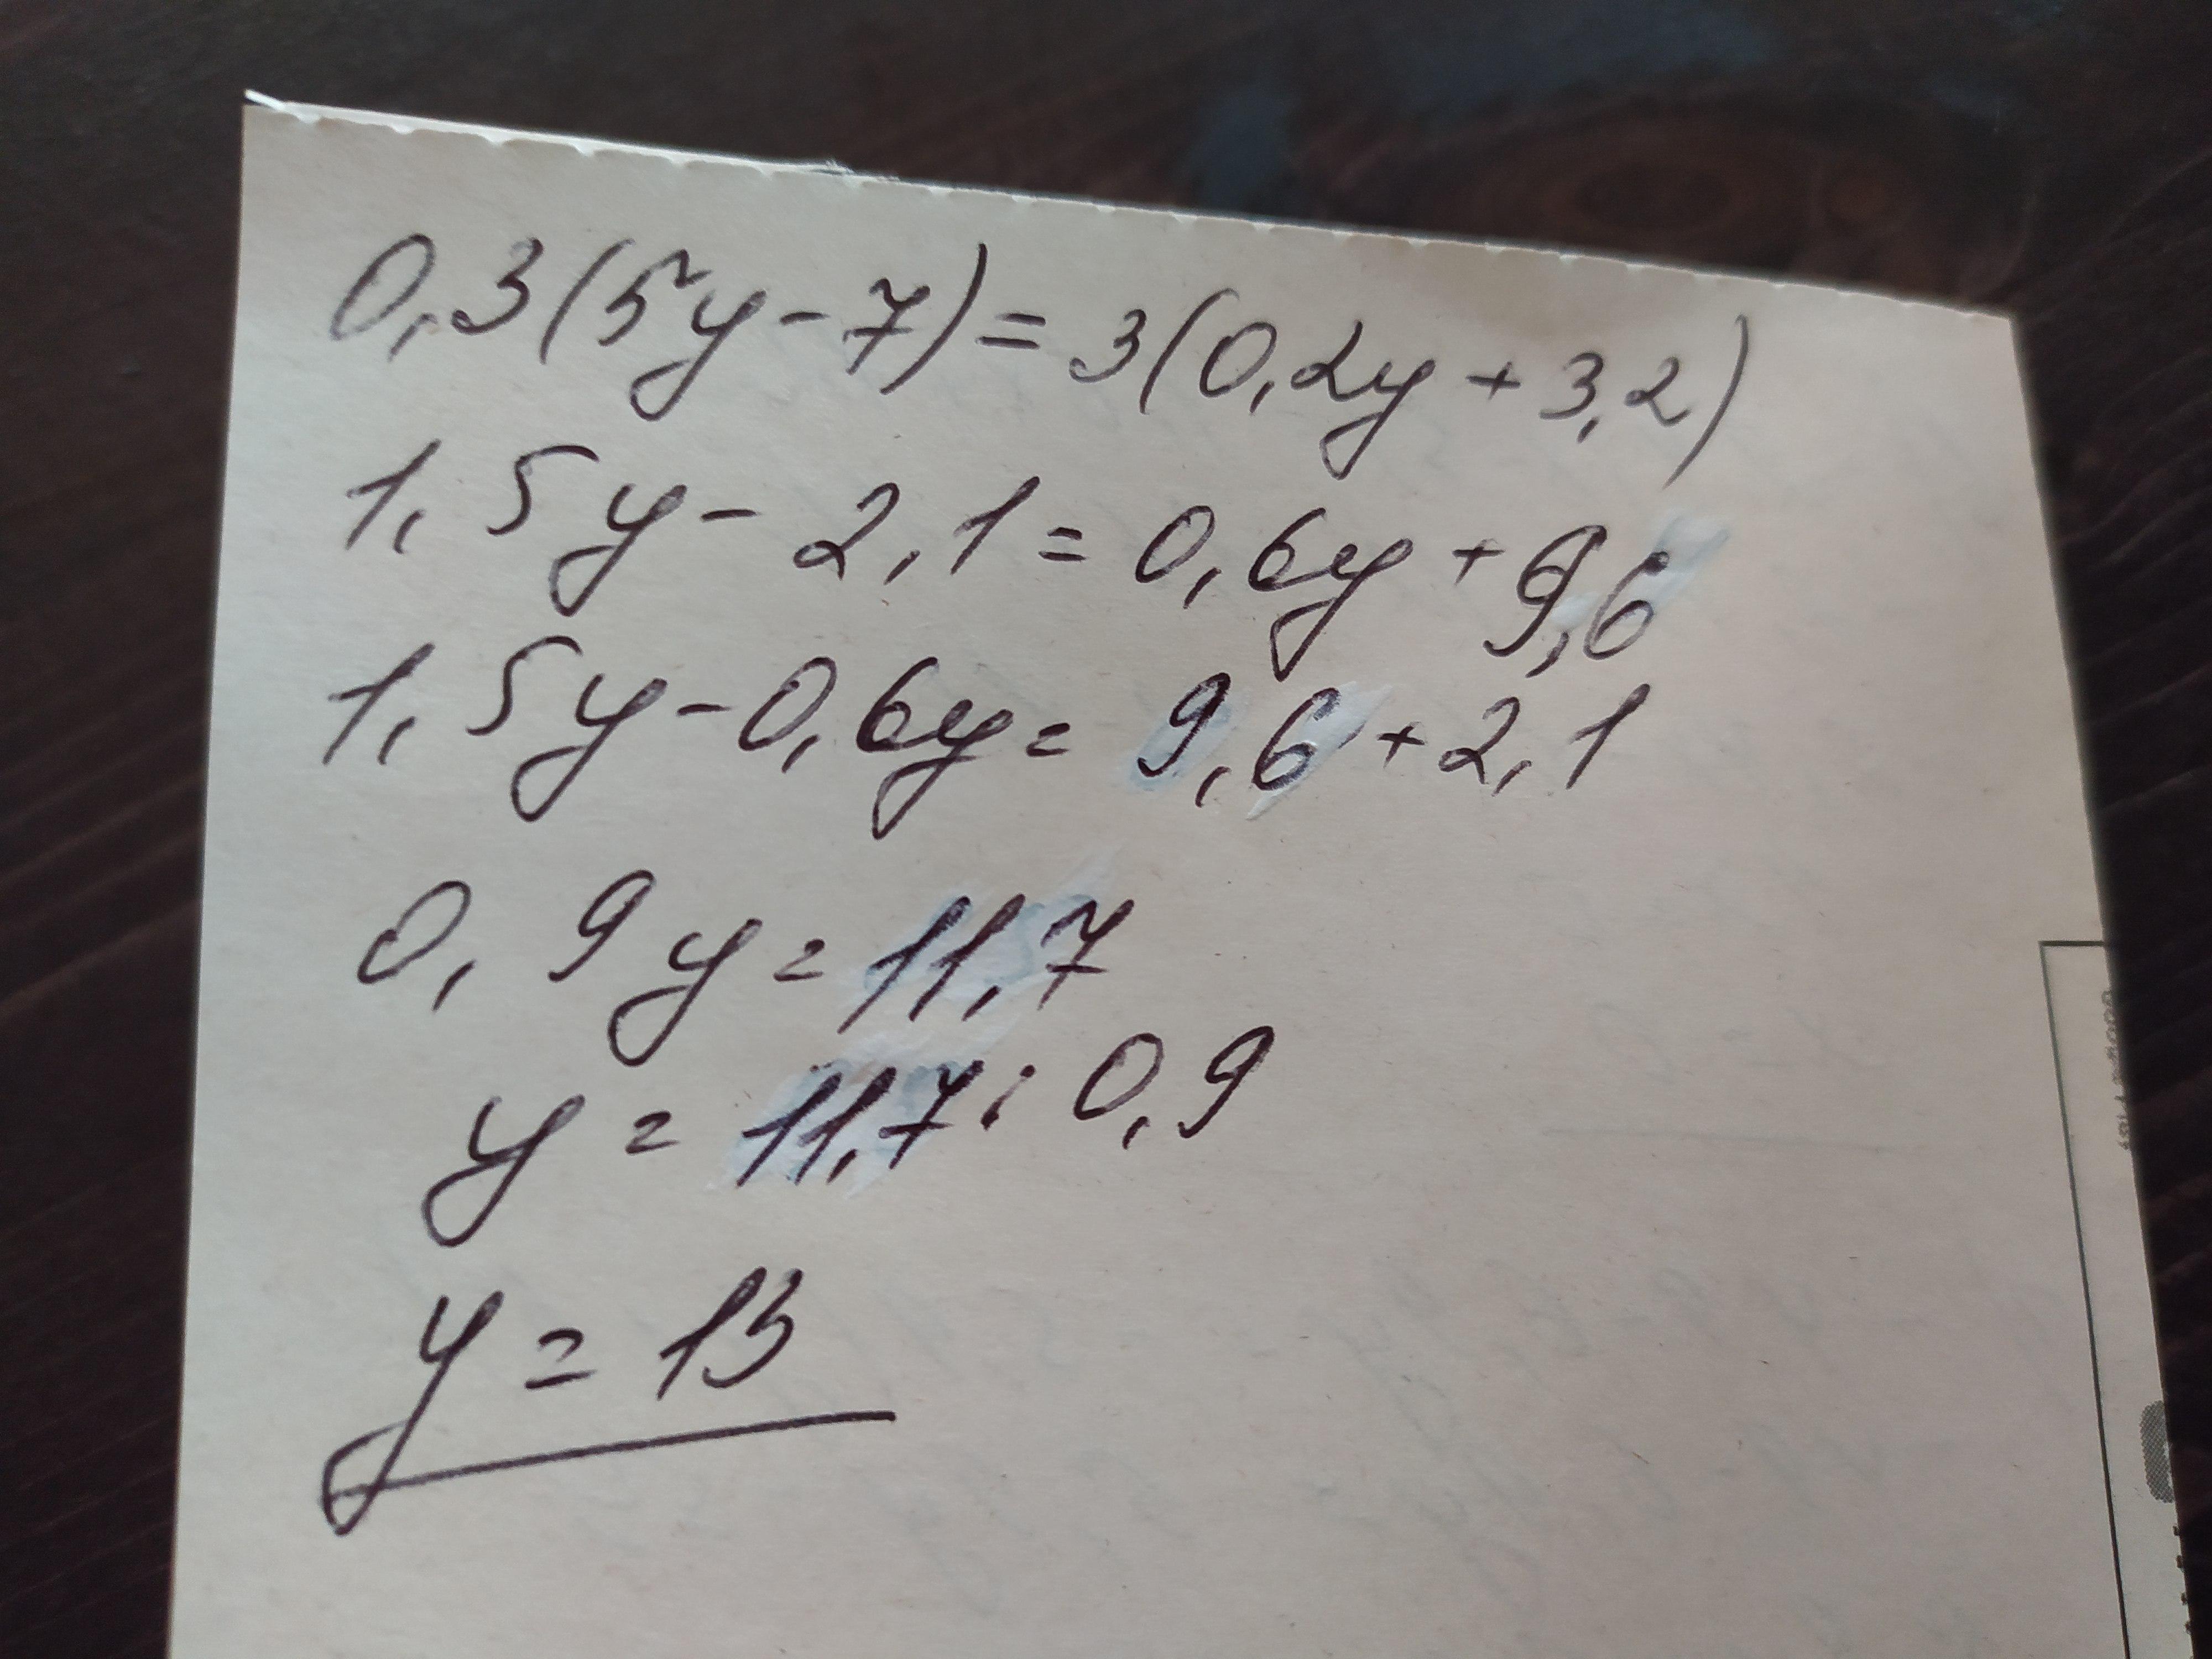 0,3(5y-7)=3(0,2y+3,2)
1,5y-2,1=0,6y+9,6
1,5y-0,6y=9,6+2,1
0,9y=11,7
y=11,7:0,9
y=13